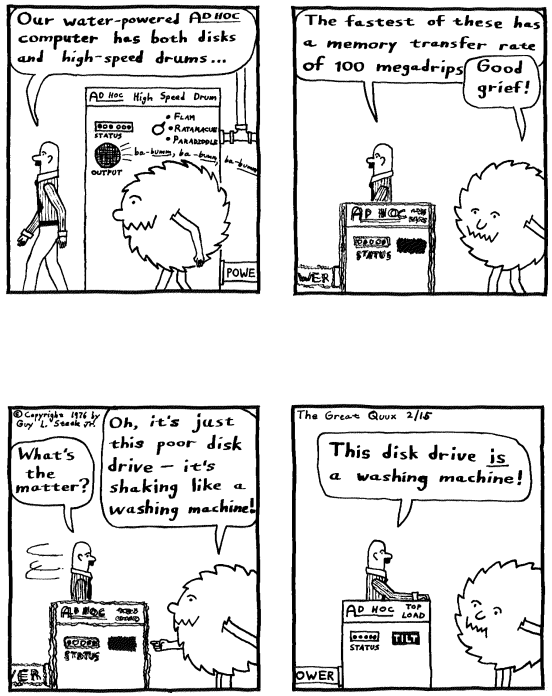 Our water-powered AD HOC
computer has both disks
and high-speed drums...
AD HOC High Speed Drum
FLAM
RATAMACUE
PARADIDDLE
STATUS
ba-bumm, ba-bumm, ba-bumm
OUTPUT
POWE
The fastest of these has
a memory transfer rate
of 100 megadrips
Good
grief!
AD HOC
STATUS
WER
© Copyright 1976 by
Guy L. Steele Jr.
What's
the
matter?
Oh, it's just
this poor disk
drive – it's
shaking like a
washing machine!
AD HOC
STATUS
WER
The Great Quux 2/15
This disk drive is
a washing machine!
AD HOC TOP
LOAD
STATUS
TILT
OWER